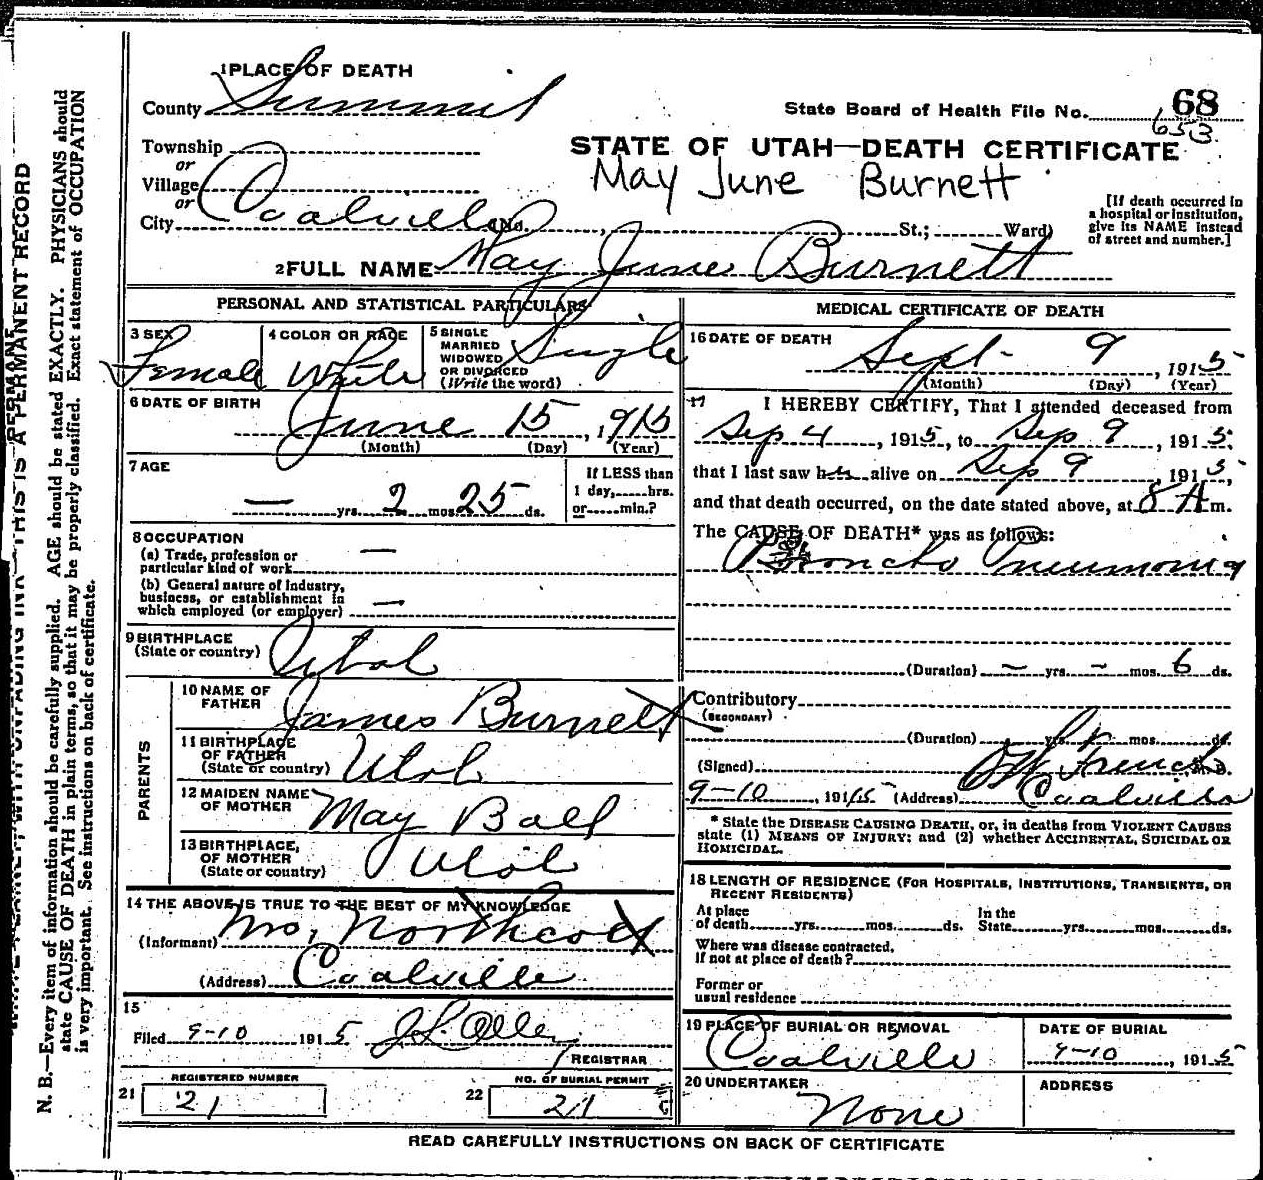 1 PLACE OF DEATH
County Summit
State Board of Health File No. 68
653
Township
or
Village
or
City Coalville (No. , St.; Ward)
STATE OF UTAH—DEATH CERTIFICATE
May June Burnett
[If death occurred in
a hospital or institution,
give its NAME instead
of street and number.]
2 FULL NAME May June Burnett
PERSONAL AND STATISTICAL PARTICULARS
3 SEX Female
4 COLOR OR RACE White
5 SINGLE
MARRIED
WIDOWED
OR DIVORCED
(Write the word)
Single
6 DATE OF BIRTH
June 15, 1915
(Month) (Day) (Year)
7 AGE
— yrs. 2 mos. 25 ds.
If LESS than
1 day, hrs.
or min.?
8 OCCUPATION
(a) Trade, profession or
particular kind of work —
(b) General nature of industry,
business, or establishment in
which employed (or employer) —
9 BIRTHPLACE
(State or country) Utah
PARENTS
10 NAME OF
FATHER James Burnett
11 BIRTHPLACE
OF FATHER
(State or country) Utah
12 MAIDEN NAME
OF MOTHER May Ball
13 BIRTHPLACE,
OF MOTHER
(State or country) Utah
14 THE ABOVE IS TRUE TO THE BEST OF MY KNOWLEDGE
(Informant) Mrs, Northcott
(Address) Coalville
15
Filed 9-10 1915
REGISTRAR
REGISTERED NUMBER
21 21
NO. OF BURIAL PERMIT
22 21
MEDICAL CERTIFICATE OF DEATH
16 DATE OF DEATH
Sept. 9, 1915
(Month) (Day) (Year)
17 I HEREBY CERTIFY, That I attended deceased from
Sep 4, 1915, to Sep 9, 1915,
that I last saw her alive on Sep 9, 1915
and that death occurred, on the date stated above, at 8 A m.
The CAUSE OF DEATH* was as follows:
Broncho Pneumonia
(Duration) – yrs. – mos. 6 ds.
Contributory
(SECONDARY)
(Duration) yrs. mos. ds.
(Signed) French M.D.
9-10, 1915 (Address) Coalville
* State the DISEASE CAUSING DEATH, or, in deaths from VIOLENT CAUSES
state (1) MEANS OF INJURY; and (2) whether ACCIDENTAL, SUICIDAL OR
HOMICIDAL.
18 LENGTH OF RESIDENCE (FOR HOSPITALS, INSTITUTIONS, TRANSIENTS, OR
RECENT RESIDENTS)
At place
of death yrs. mos. ds.
In the
State yrs. mos. ds.
Where was disease contracted,
if not at place of death?
Former or
usual residence
19 PLACE OF BURIAL OR REMOVAL
Coalville
DATE OF BURIAL
9-10, 1915
20 UNDERTAKER
None
ADDRESS
READ CAREFULLY INSTRUCTIONS ON BACK OF CERTIFICATE
THIS IS A PERMANENT RECORD
N. B.—Every item of information should be carefully supplied. AGE should be stated EXACTLY. PHYSICIANS should
state CAUSE OF DEATH in plain terms, so that it may be properly classified. Exact statement of OCCUPATION
is very important. See instructions on back of certificate.